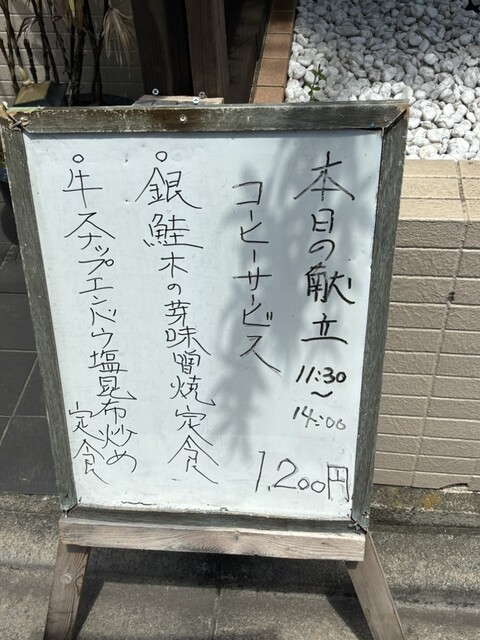 本日の献立 11:30〜14:00
コーヒーサービス
1,200円
○銀鮭木の芽味噌焼定食
○牛スナップエンドウ塩昆布炒め定食